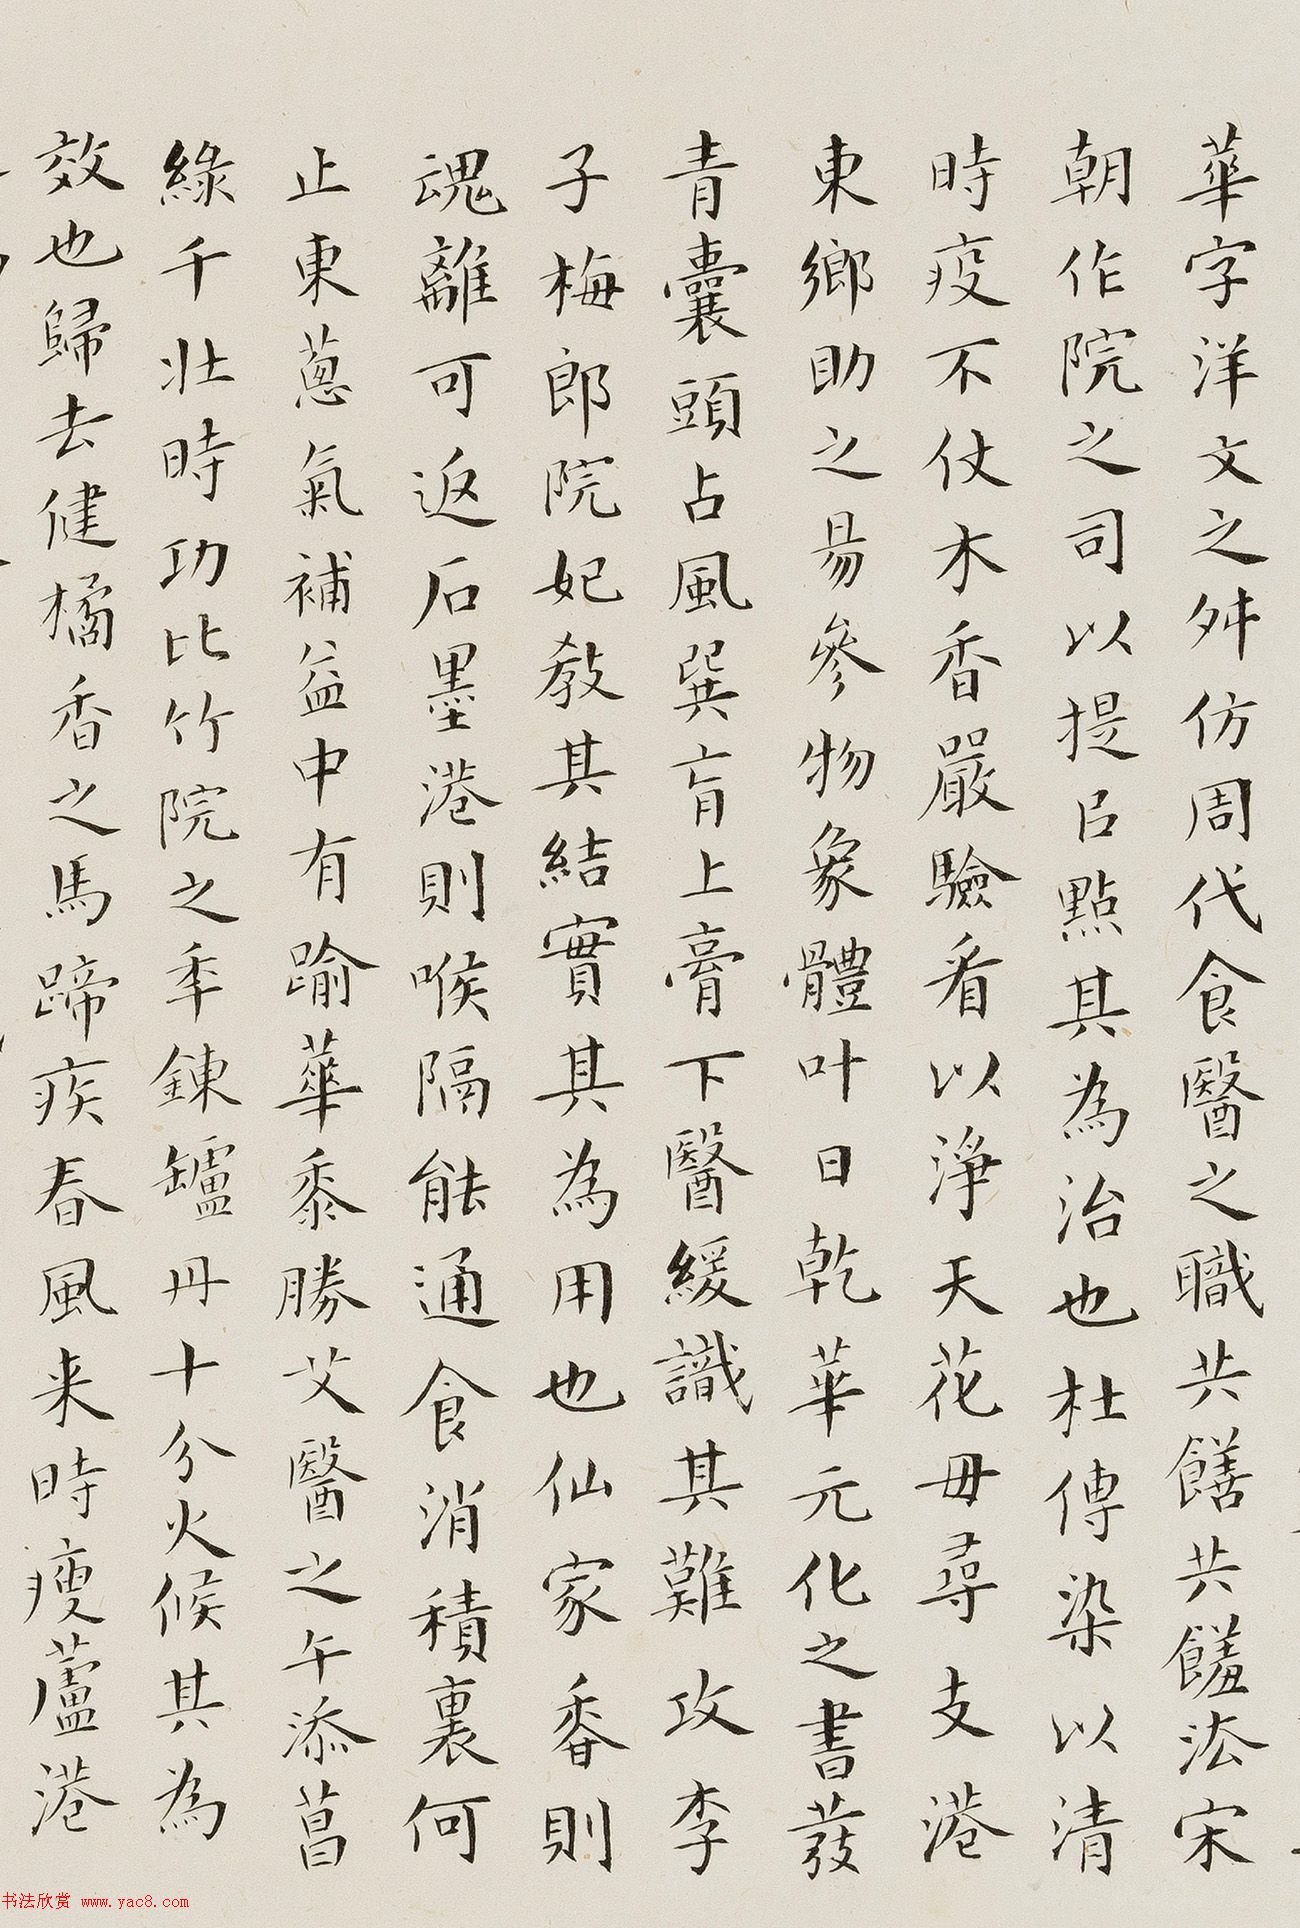 華字洋文之舛仿周代食醫之職共饍共饈法宋
朝作院之司以提召點其為治也杜傳染以清
時疫不仗木香嚴驗看以淨天花毋尋支港
東鄉助之易參物象體叶日乾華元化之書發
青囊頭占風巽肓上膏下醫緩識其難攻李
子梅郎院妃教其結實其為用也仙家香則
魂離可返石墨港則喉隔能通食消積裏何
止東蔥氣補益中有踰華黍勝艾醫之午添菖
綠千壯時功比竹院之季鍊罏丹十分火候其為
效也歸去健橘香之馬蹄疾春風来時瘦蘆港
书法欣赏 www.yac8.com